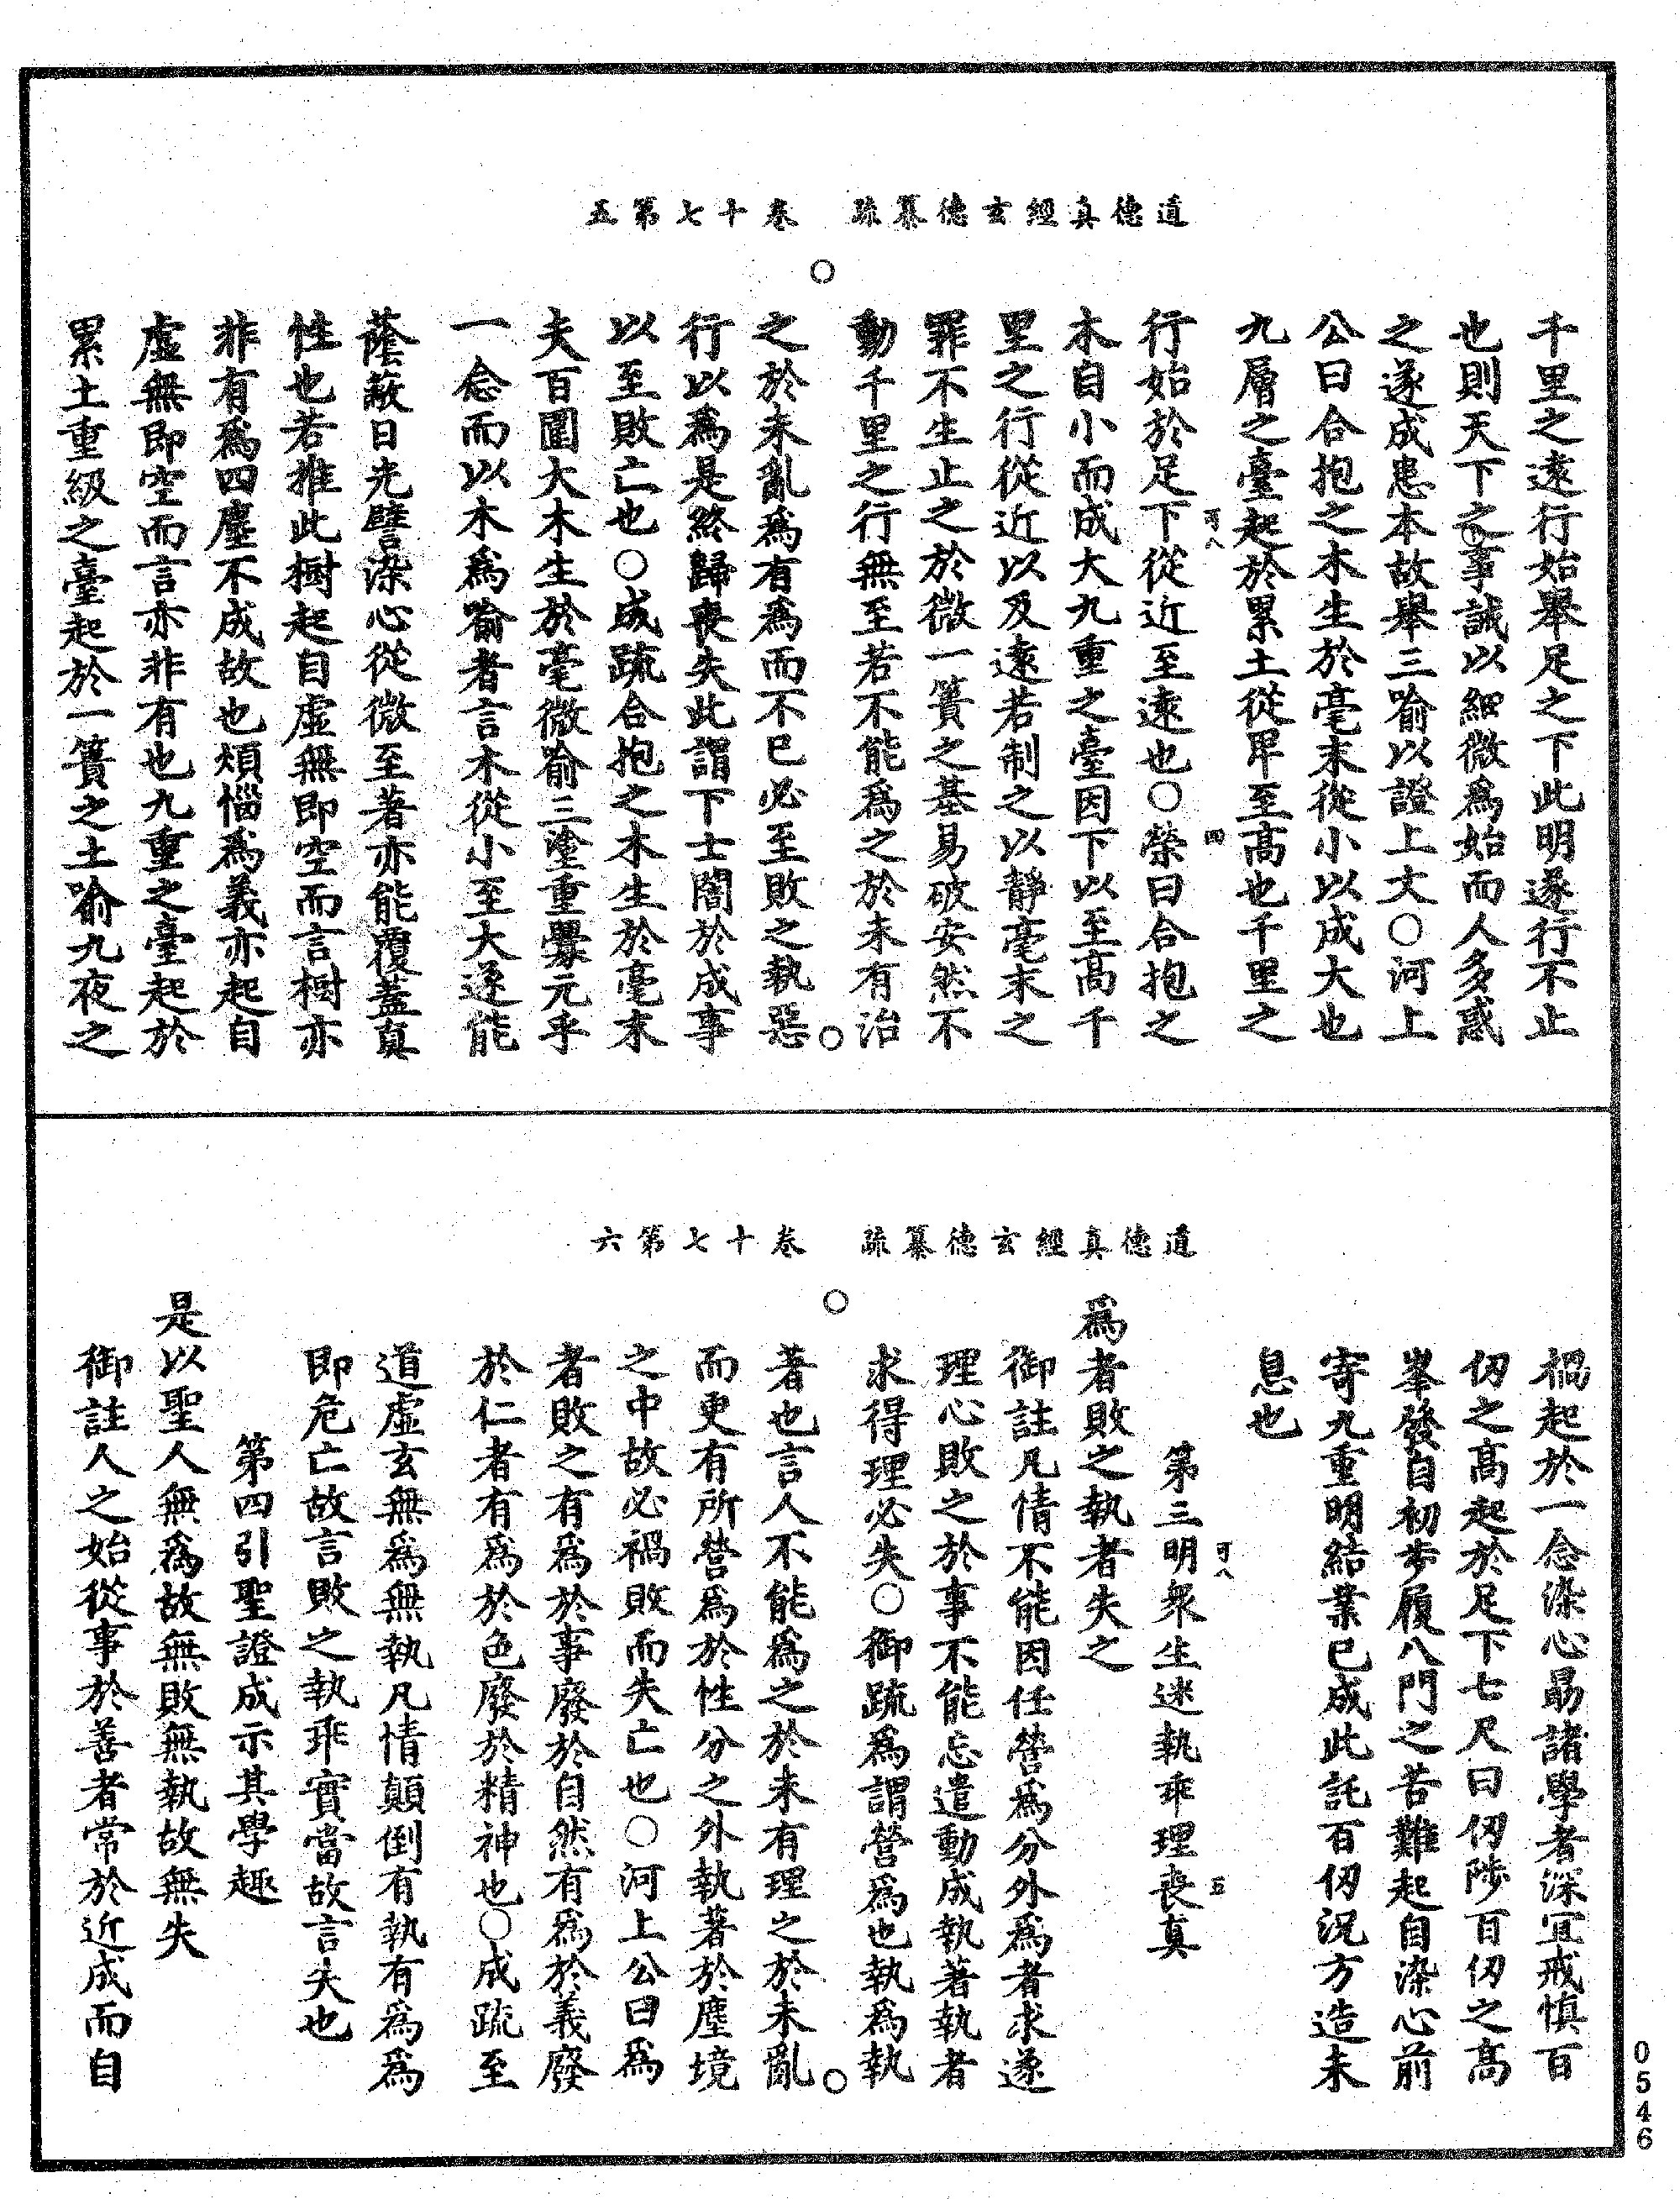 道德真經玄德纂疏　卷十七第五
千里之遠行始舉足之下此明遂行不止
也則天下之事誠以細微爲始而人多惑
之遂成患本故舉三喻以證上文○河上
公曰合抱之木生於毫末從小以成大也
九層之臺起於累土從卑至高也千里之
可八
四
行始於足下從近至遠也○榮曰合抱之
木自小而成大九重之臺因下以至高千
里之行從近以及遠若制之以靜毫末之
罪不生止之於微一簣之基易破安然不
動千里之行無至若不能爲之於未有治
之於未亂爲有爲而不已必至敗之執惡
行以爲是終歸喪失此謂下士闇於成事
以至敗亡也○成疏合抱之木生於毫末
夫百圍大木生於毫微喻三塗重釁元乎
一念而以木爲喻者言木從小至大遂能
蔭蔽日光譬染心從微至著亦能覆蓋真
性也若推此樹起自虛無即空而言樹亦
非有爲四塵不成故也煩惱爲義亦起自
虛無即空而言亦非有也九重之臺起於
累土重級之臺起於一簣之土喻九夜之
道德真經玄德纂疏　卷十七第六
禍起於一念染心勗諸學者深宜戒慎百
仞之高起於足下七尺曰仞陟百仞之高
峯發自初步履八門之苦難起自染心前
寄九重明結業已成此託百仞況方造未
息也
可八
五
第三明衆生迷執乖理喪真
爲者敗之執者失之
御註凡情不能因任營爲分外爲者求遂
理心敗之於事不能忘遣動成執著執者
求得理必失○御疏爲謂營爲也執爲執
著也言人不能爲之於未有理之於未亂
而更有所營爲於性分之外執著於塵境
之中故必禍敗而失亡也○河上公曰爲
者敗之有爲於事廢於自然有爲於義廢
於仁者有爲於色廢於精神也○成疏至
道虛玄無爲無執凡情顛倒有執有爲爲
即危亡故言敗之執乖實當故言失也
第四引聖證成示其學趣
是以聖人無爲故無敗無執故無失
御註人之始從事於善者常於近成而自
0546